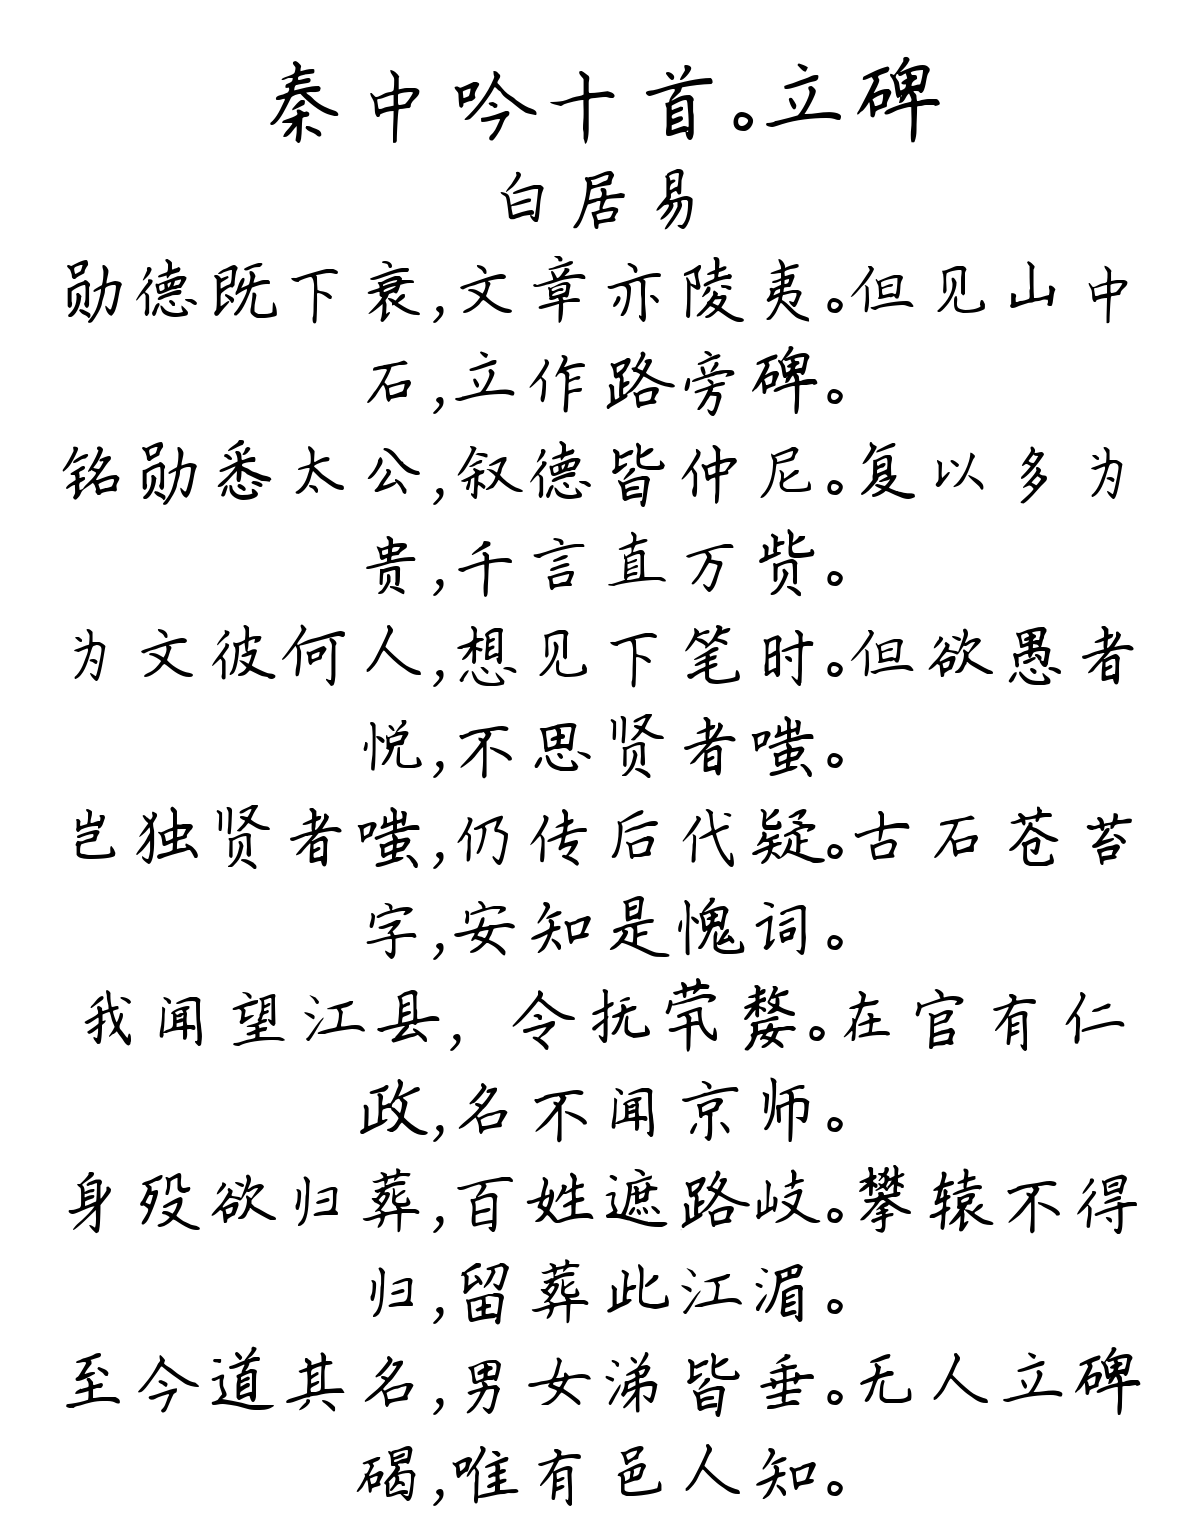 秦中吟十首。立碑
白居易
勋德既下衰,文章亦陵夷。但见山中
石,立作路旁碑。
铭勋悉太公,叙德皆仲尼。复以多为
贵,千言直万赀。
为文彼何人,想见下笔时。但欲愚者
悦,不思贤者嗤。
岂独贤者嗤,仍传后代疑。古石苍苔
字,安知是愧词。
我闻望江县, 令抚茕嫠。在官有仁
政,名不闻京师。
身殁欲归葬,百姓遮路岐。攀辕不得
归,留葬此江湄。
至今道其名,男女涕皆垂。无人立碑
碣,唯有邑人知。